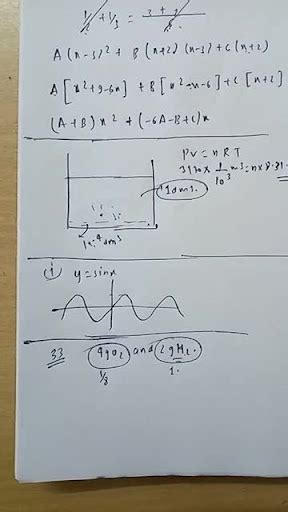 1/2 + 1/3 = 3 + 2
A(x-3)² + B(x+2)(x-3) + C(x+2)
A[x²+9-6x] + B[x²-x-6] + C[x+2]
(A+B)x² + (-6A-B+C)x
PV = nRT
3170 × 1/10³ m³ = n × 8.31
1dm³.
1×⁻⁴dm³
① y = sinx
33 4gO₂ and 2gH₂.
1/8 1.